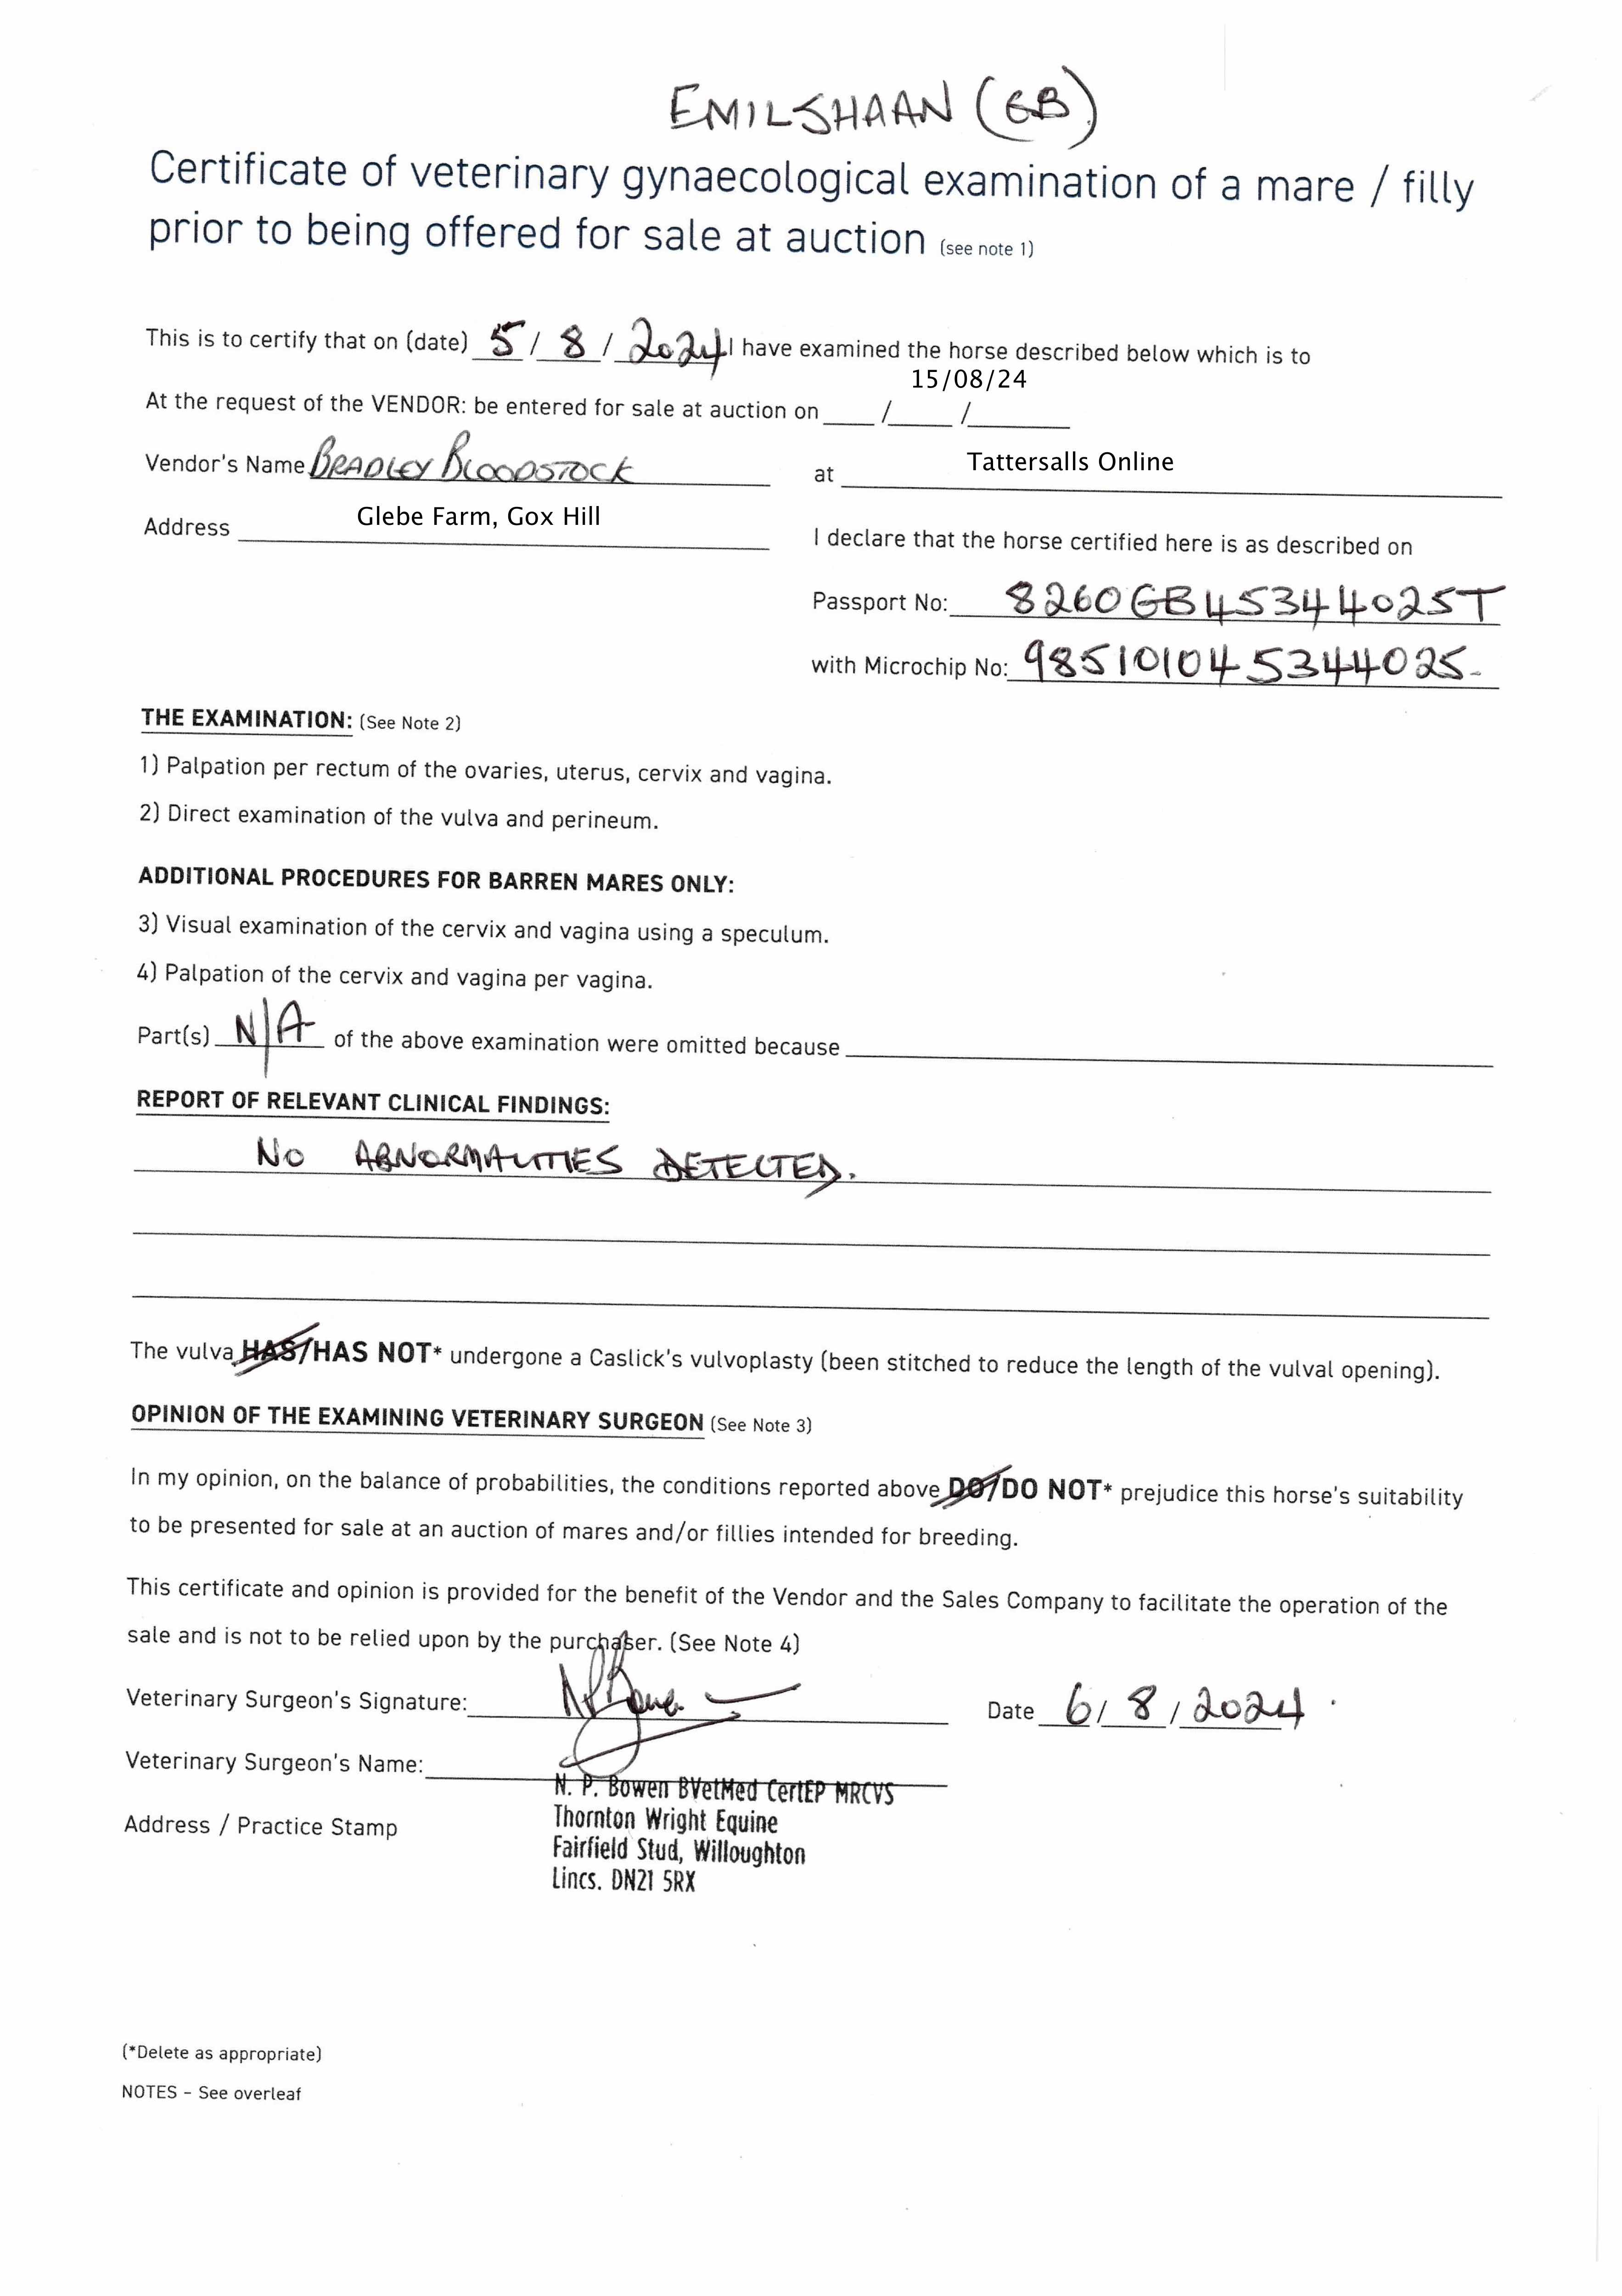 EMILSHAAN (GB)
Certificate of veterinary gynaecological examination of a mare / filly
prior to being offered for sale at auction (see note 1)
This is to certify that on (date) 5 / 8 / 2024 I have examined the horse described below which is to
15/08/24
At the request of the VENDOR: be entered for sale at auction on / /
Vendor's Name BRADLEY BLOODSTOCK at Tattersalls Online
Address Glebe Farm, Gox Hill
I declare that the horse certified here is as described on
Passport No: 8260GB45344025T
with Microchip No: 985101045344025-
THE EXAMINATION: (See Note 2)
1) Palpation per rectum of the ovaries, uterus, cervix and vagina.
2) Direct examination of the vulva and perineum.
ADDITIONAL PROCEDURES FOR BARREN MARES ONLY:
3) Visual examination of the cervix and vagina using a speculum.
4) Palpation of the cervix and vagina per vagina.
Part(s) N/A of the above examination were omitted because
REPORT OF RELEVANT CLINICAL FINDINGS:
NO ABNORMALITIES DETECTED.
The vulva HAS/HAS NOT* undergone a Caslick's vulvoplasty (been stitched to reduce the length of the vulval opening).
OPINION OF THE EXAMINING VETERINARY SURGEON (See Note 3)
In my opinion, on the balance of probabilities, the conditions reported above DO/DO NOT* prejudice this horse's suitability
to be presented for sale at an auction of mares and/or fillies intended for breeding.
This certificate and opinion is provided for the benefit of the Vendor and the Sales Company to facilitate the operation of the
sale and is not to be relied upon by the purchaser. (See Note 4)
Veterinary Surgeon's Signature: NPBowen Date 6 / 8 / 2024
Veterinary Surgeon's Name:
N. P. Bowen BVetMed CertEP MRCVS
Address / Practice Stamp Thornton Wright Equine
Fairfield Stud, Willoughton
Lincs. DN21 5RX
(*Delete as appropriate)
NOTES - See overleaf